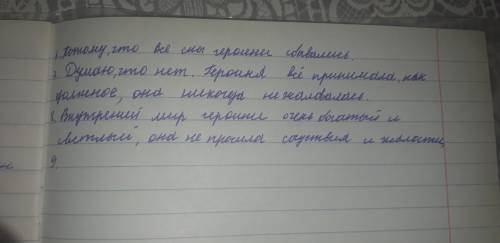 1. Потому, что все сны героини сбывались.
7. Думаю, что нет. Героиня всё принимала, как
должное, она никогда не жаловалась.
8. Внутрений мир героини очень богатый и
светлый, она не просила сочуствия и жалости
9.